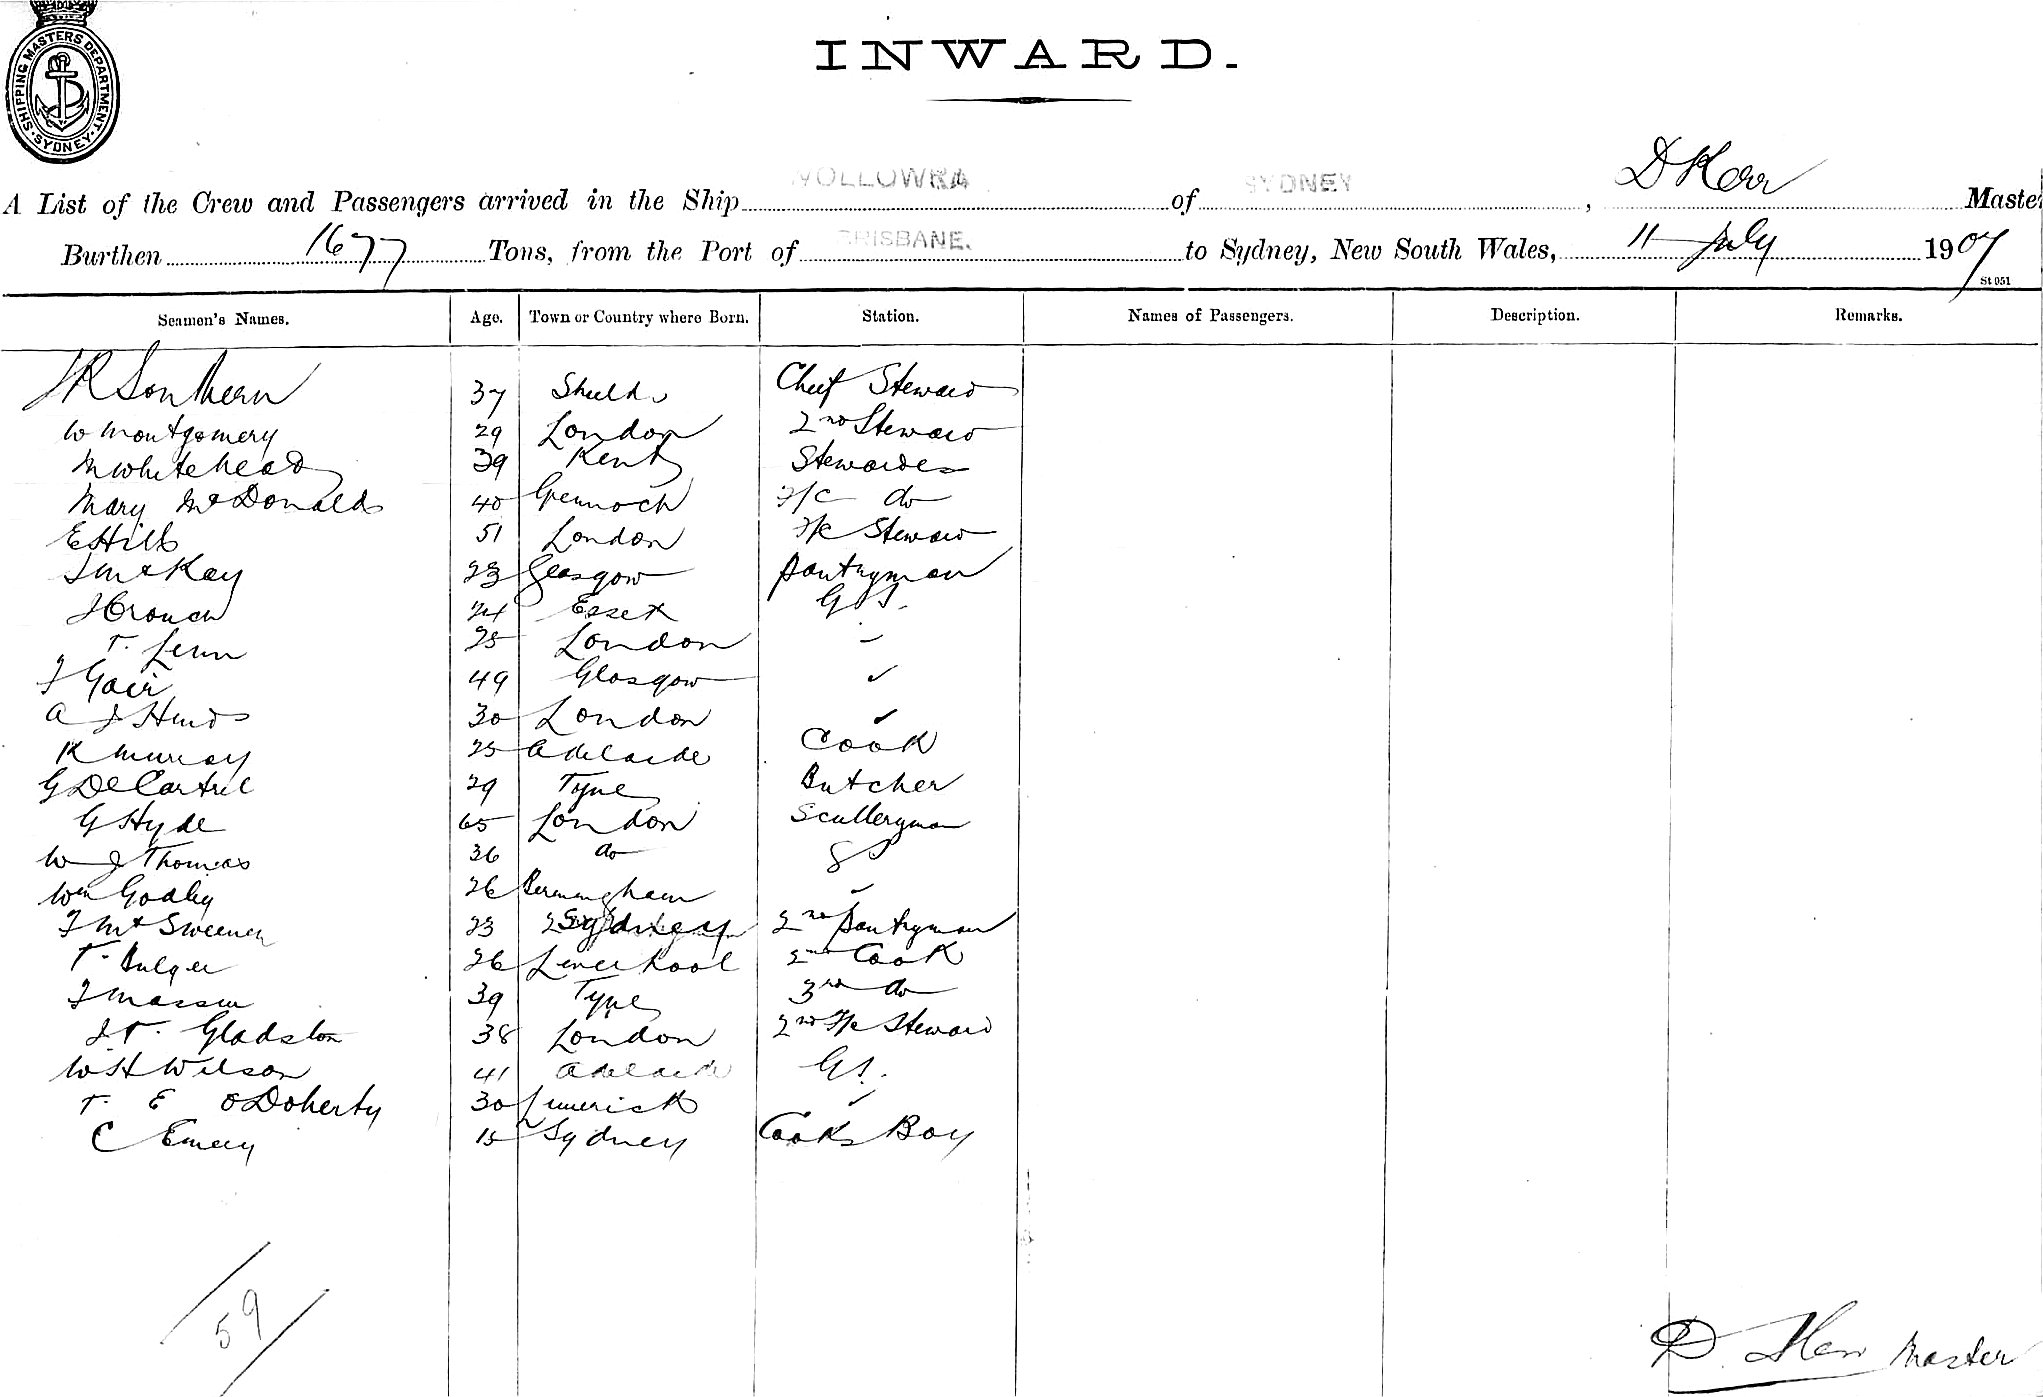 SHIPPING MASTERS DEPARTMENT. SYDNEY
INWARD.
A List of the Crew and Passengers arrived in the Ship WOLLOWRA of SYDNEY, D Kerr Master
Burthen 1677 Tons, from the Port of BRISBANE. to Sydney, New South Wales, 11 July 1907
St 051
Seamen's Names. Age. Town or Country where Born. Station. Names of Passengers. Description. Remarks.
JR Southern 37 Shields Chief Steward
W Montgomery 29 London 2nd Steward
M Whitehead 39 Kent Stewardes
Mary McDonald 40 Greenock F/C do
E Hills 51 London F/C Steward
J McKay 23 Glasgow Pantryman
J Crouch 24 Essex G S.
T. Lenn 25 London "
J Gair 49 Glasgow "
A J Hinds 30 London "
R Murray 25 Adelaide Cook
G De Cartril 29 Tyne Butcher
G Hyde 65 London Sculleryman
W J Thomas 36 do G S
Wm Godley 26 Birmingham "
J McSweeney 23 Sydney 2nd Pantryman
T. Bulger 26 Liverpool 2nd Cook
J 39 Tyne 3rd do
J T. Gladston 38 London 2nd F/C Steward
W H Wilson 41 Adelaide G S.
T. E O Doherty 30 Limerick "
C Emery 15 Sydney Cooks Boy
59
D Kerr Master